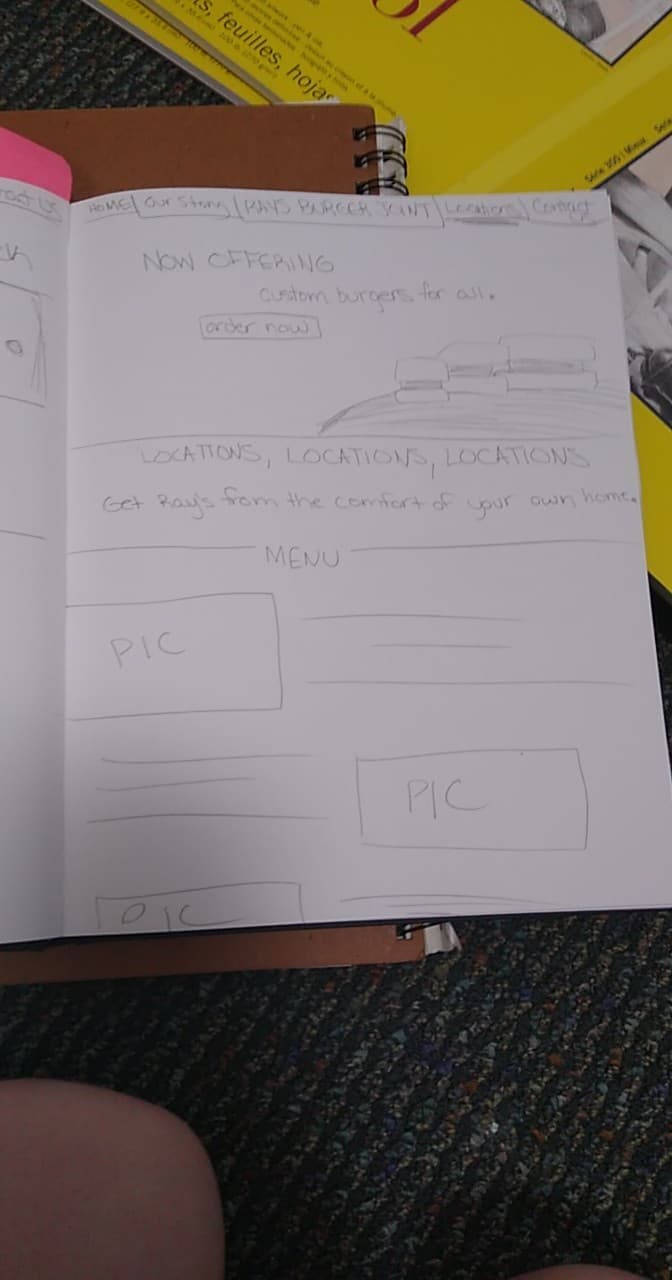 ts, feuilles, hojas
Série 300 | Mince
HOME | Our Story | RAYS BURGER JOINT | Locations | Contact
NOW OFFERING
custom burgers for all.
order now
LOCATIONS, LOCATIONS, LOCATIONS
Get Ray's from the comfort of your own home.
MENU
PIC
PIC
PIC